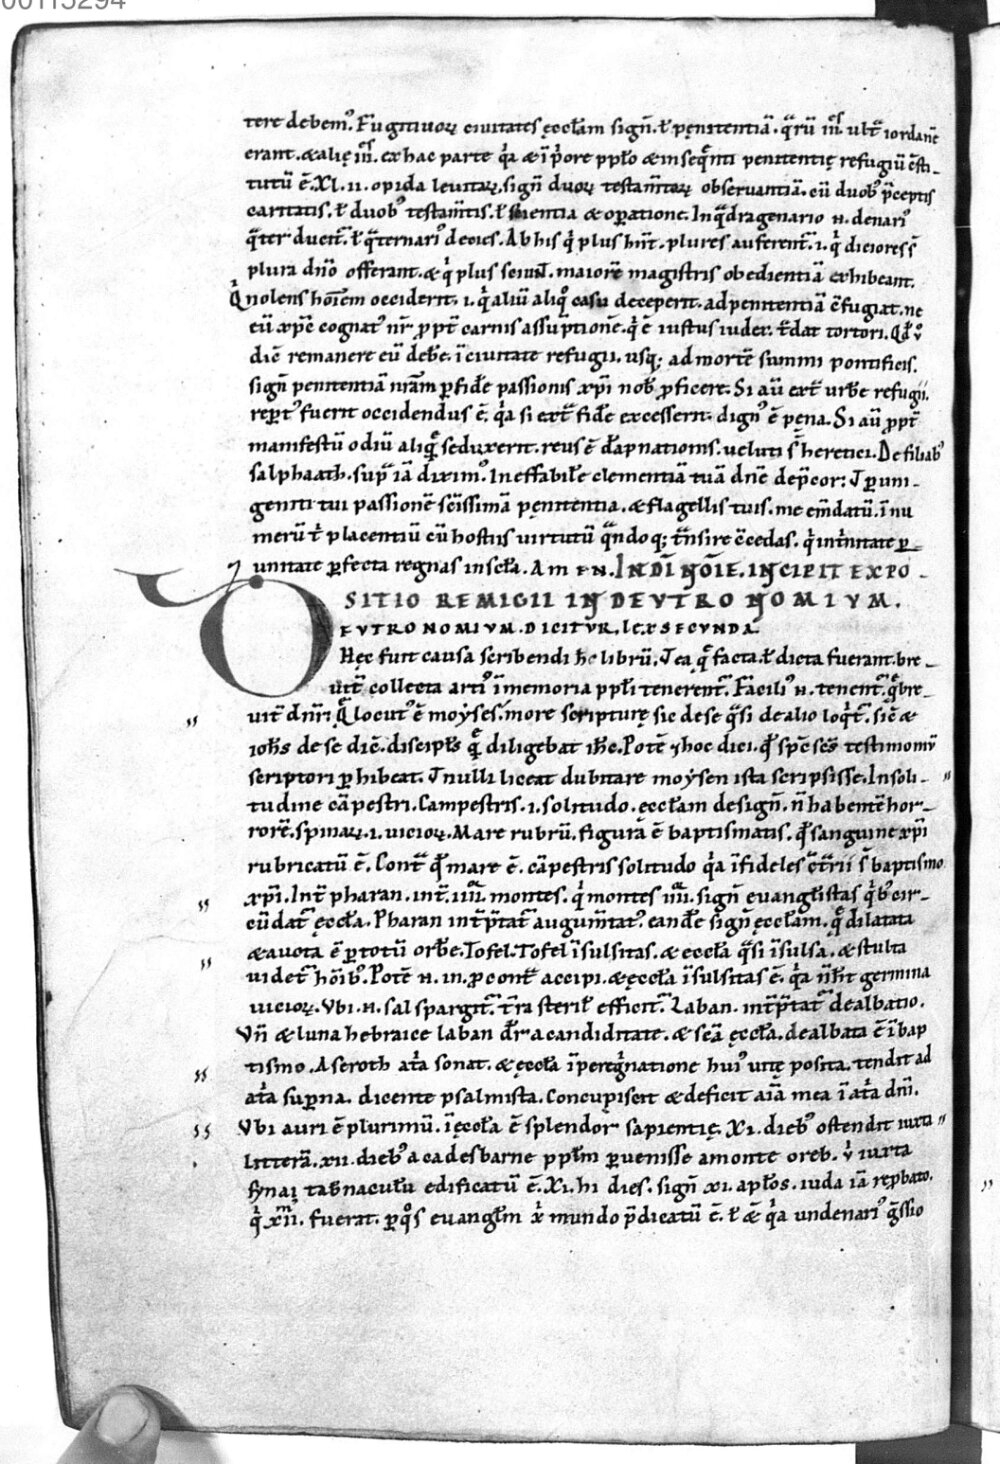 00115294
tere debem᾽. Fugitiuoꝝ ciuitates ęccłam sign̄. ł pęnitentiā. q̄rū iii. ult̄ iordanē
erant. & alię iii. ex hac parte q̇a & ī p̄ore pp̄lo & in seq̄nti penitentię refugiū ēsti-
tutū ē. XL. ii. opida leuitaꝝ. sign̄ duoꝝ testam̄toꝝ obseruantiā. cū duob᾽ p̄ceptis
caritatis. ł duob᾽ testam̄tis. ł scientia & oꝑatione. In q̄dragenario n. denari᾽
q̄ter ducit᷑. ł q̄ternari᾽ decies. Ab his q̇ plus hn̄t. plures auferent᷑ .i. q̇ diciores s̄
plura dn̄o offerant. & q̇ plus sciunt. maiorē magistris obedientiā exhibeant.
Q̇ nolens hoīem occiderit .i. q̇ aliū aliq̊ casu deceperit. ad penitentiā ēfugiat. ne
eū xp̄c cognat᾽ nr̄ ꝓpt̄ carnis assūptionē. q̇ ē iustus iudex. t̄dat tortori. Qd̄ v̊
dic̄ remanere eū deb̄e. ī ciuitate refugii. usq; ad mortē summi pontificis.
sign̄ penitentiā nīam ꝑ fidē passionis xp̄i nob᾽ ꝓficere. Si aū ext̄ urbē refugii.
reꝑt᾽ fuerit occidendus ē. q̇a si ext̄ fidē excesserit. dign᾽ ē pena. Si aū ꝓpt̄
manifestū odiū aliq̄ seduxerit. reus ē dāpnationis. ueluti s̄ heretici. De filiab᾽
salphaath. sup̄ iā dixim᾽. Ineffabilē clementiā tuā dn̄e dep̄cor: ꝑ uni-
geniti tui passionē sc̄issimā pęnitentia. & flagellis tuis. me em̄datū. ī nu
merū t̄ placentiū cū hostiis uirtutū q̄ndoq; t̄nsire c̄cedas. q̇ in t̄nitate ꝑ
unitate ꝑfecta regnas in scła. AMEN. IN DĪ NOĪE. INCIPIT EXPO-
SITIO REMIGII IN DEVTRONOMIVM.
DEVTRONOMIVM. DICITVR. LEX SECVNDA.
Hęc fuit causa scribendi h̄c librū. ea q̄ facta. ł dicta fuerant. bre-
uit᷑ collecta arti᾽ ī memoria pp̄li tenerent᷑. Facili᾽ n. tenent᷑. q̄ bre-
uit᷑ dn̄r. Q̄ locut᾽ ē moyses. more scripturę sic de se q̄si de alio loq̇t᷑. sic̄ &
ioh̄s de se dic̄. discip̄ls q̄ diligebat ih̄c. Potē & hoc dici. q̊ sp̄c sc̄s testimoniū
scriptori ꝑhibeat. nulli liceat dubitare moysen ista scripsisse. In soli-
tudine cāpestri. Campestris .i. solitudo. ęccłam design̄. n̄ habentē hor-
rorē. spinaꝝ .i. uicioꝝ. Mare rubrū. figura ē baptismatis. q̊ sanguine xp̄i
rubricatū ē. Cont̄ q̊ mare ē. cāpestris solitudo q̇a īfideles c̄t̄rii s̄ baptismo
xp̄i. Int̄ pharan. int̄ iiii. montes. q̇ montes iiii. sign̄ euangłistas q̇b᾽ cir-
cūdat᷑ ęccła. Pharan int̄p̄tat᷑ augum̄tat᾽. eandē sign̄ ęccłam. q̄ dilatata
& aucta ē ꝑ totū orbē. Tofel. Tofel īsulsitas. & ęccła q̄si īsulsa. & stulta
uidet᷑ hoīb᾽. Potē n. in ꝓ cont̄ accipi. & ęccła īsulsitas ē. q̇a n̄ h̄t germina
uicioꝝ. Vbi .n. sal spargit᷑. t̄ra sterił efficit᷑. Laban. int̄p̄tat᷑ dealbatio.
Vn̄ & luna hebraice laban dr̄ a candiditate. & scā ęccła. dealbata ē ī bap
tismo. Aseroth at̊a sonat. & ęccła ī peregrinatione hui᾽ uitę posita. tendit ad
at̊a suꝑna. dicente psalmista. Concupiscit & deficit aīa mea ī at̊a dn̄i.
Vbi auri ē plurimū. ī ęccła ē splendor sapientię. XI. dieb᾽ ostendit iuxta
litterā. xii. dieb᾽ a cadesbarne pp̄lm ꝑuenisse a monte oreb. v̊ iuxta
synai tab̄naculū edificatū ē. XI. hi dies. sign̄ xi. apłos. iuda iā rep̄bato.
q̇ xii. fuerat. ꝑ q̊s euangłm ī mundo p̄dicatū ē. ł & ē q̇a undenari᾽ ḡssio